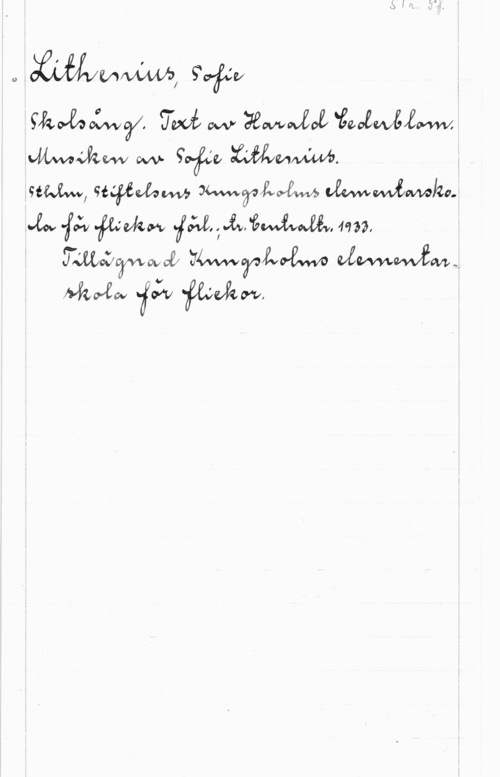 Lithenius, Sofie
Skolsång. Text av Harald Cederblom.
Musiken av Sofie Lithenius.
Sthlm, Stiftelsens Kungsholms elementarsko-
la för flickor förl.; tr. Centraltr. 1933.
Tillägnad Kungsholms elementar-
skola för flickor.